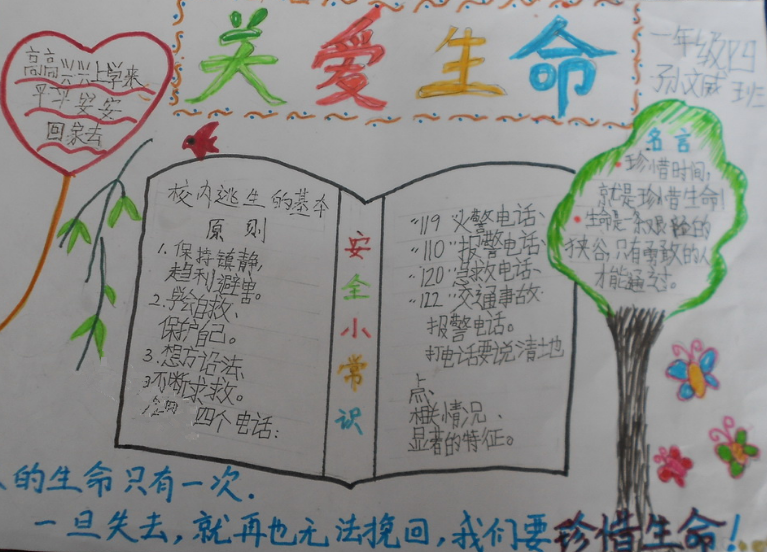 关爱生命
一年级四班
孙文威
高高兴兴上学来
平平安安
回家去
校内逃生的基本
原则
1.保持镇静,
趋利避害。
2.学会自救、
保护自己。
3.想方设法、
不断求救。
四个电话:
安全小常识
“119”火警电话、
“110”报警电话、
“120”急救电话、
“122”交通事故
报警电话。
打电话要说清地
点、
相关情况、
显著的特征。
名言
珍惜时间,
就是珍惜生命!
生命是一条艰险的
狭谷,只有勇敢的人
才能通过。
人的生命只有一次.
一旦失去,就再也无法挽回,我们要珍惜生命!